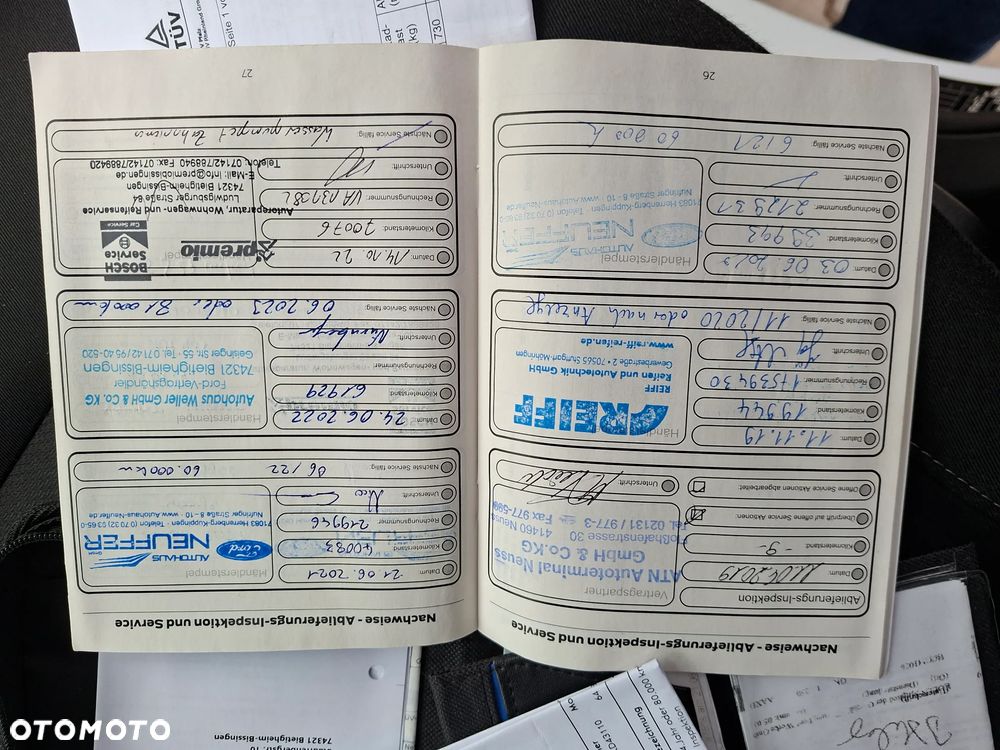 Nachweise - Ablieferungs-Inspektion und Service
Ablieferungs-Inspektion
Vertragspartner
Datum:
Kilometerstand: -9-
Überprüft auf offene Service Aktionen:
Offene Service Aktionen abgearbeitet:
Unterschrift:
ATN Autoterminal Neuss
GmbH & Co.KG
Floßhafenstrasse 30 41460 Neuss
Tel. 02131 / 977-3 Fax 977-599
Händlerstempel
Datum: 11.11.19
Kilometerstand: 19944
Rechnungsnummer:
Unterschrift:
Nächste Service fällig: 11/2020 oder nach Anzeige
REIFF
REIFF
Reifen und Autotechnik GmbH
Gewerbestraße 2 · 70565 Stuttgart-Möhringen
www.reiff-reifen.de
Händlerstempel
Datum: 03.06.2020
Kilometerstand: 39993
Rechnungsnummer: 212931
Unterschrift:
Nächste Service fällig: 6/21 60 000
AUTOHAUS
NEUFFER
Ford
71083 Herrenberg-Kuppingen · Telefon (0 70 32) 93 65-0
Nufringer Straße 8 - 10 · www.Autohaus-Neuffer.de
26
Nachweise - Ablieferungs-Inspektion und Service
Händlerstempel
Datum: 21.06.2021
Kilometerstand: 40093
Rechnungsnummer: 219946
Unterschrift:
Nächste Service fällig: 06/22 60.000km
AUTOHAUS
NEUFFER
GmbH
Ford
71083 Herrenberg-Kuppingen · Telefon (0 70 32) 93 65-0
Nufringer Straße 8 - 10 · www.Autohaus-Neuffer.de
Händlerstempel
Datum: 24.06.2022
Kilometerstand: 61929
Rechnungsnummer:
Unterschrift:
Nächste Service fällig: 06.2023 oder 81.000km
Autohaus Weller GmbH & Co. KG
Ford-Vertragshändler
74321 Bietigheim-Bissingen
Geisinger Str. 55 · Tel. 07142/95 40-520
Datum: 14.10.22
Kilometerstand: 70076
Rechnungsnummer:
Unterschrift:
Nächste Service fällig: Wasserpumpe + Zahnriemen
premio
BOSCH
Service
Car Service
Autoreparatur, Wohnwagen- und Reifenservice
Ludwigsburger Straße 84
74321 Bietigheim-Bissingen
E-Mail: info@premiobissingen.de
Telefon: 07142/788940 Fax: 07142/7889420
27
TÜV
Seite 1
74321 Bietigheim-Bissingen
OTOMOTO